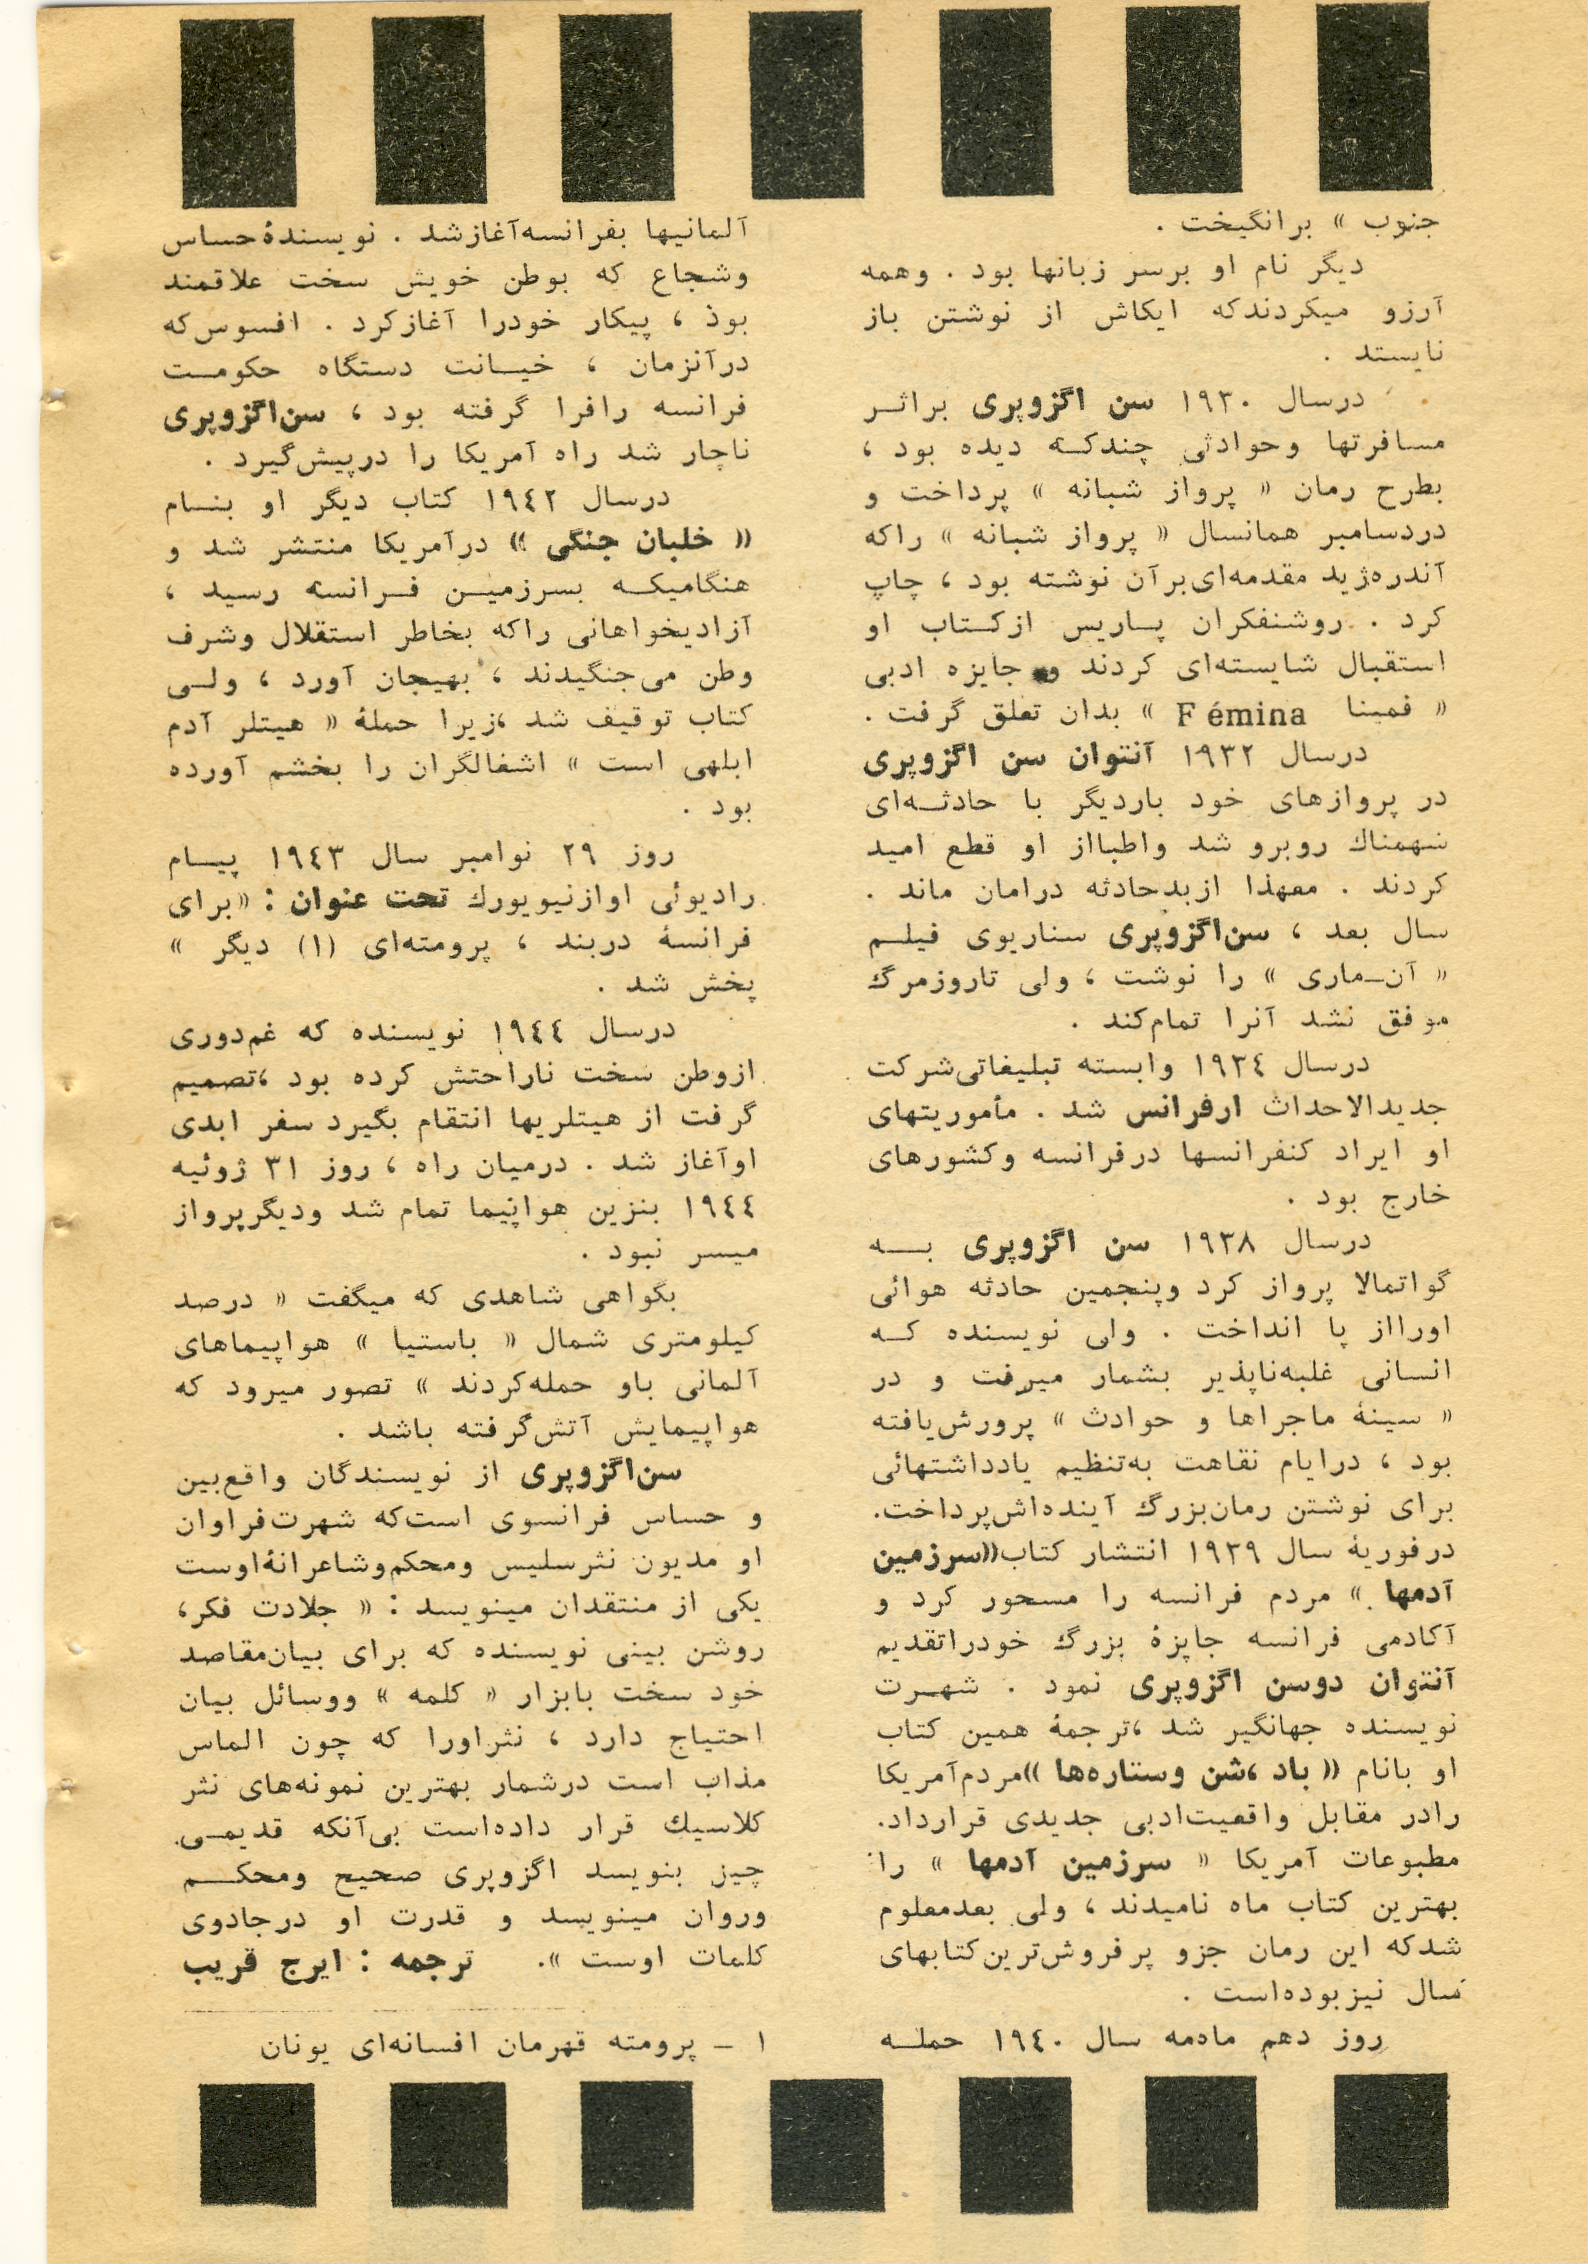 جنوب » برانگیخت .
دیگر نام او برسر زبانها بود . وهمه
آرزو میکردندکه ایکاش از نوشتن باز
نایستد .
درسال ١٩٣٠ سن اگزوپری براثر
مسافرتها وحوادثی چندکه دیده بود ،
بطرح رمان « پرواز شبانه » پرداخت و
دردسامبر همانسال « پرواز شبانه » راکه
آندره‌ژید مقدمه‌ای‌برآن نوشته بود ، چاپ
کرد . روشنفکران پاریس ازکتاب او
استقبال شایسته‌ای کردند و جایزه ادبی
« فمینا Fémina » بدان تعلق گرفت .
درسال ١٩٣٢ آنتوان سن اگزوپری
در پروازهای خود باردیگر با حادثه‌ای
سهمناك روبرو شد واطبااز او قطع امید
کردند . معهذا ازبدحادثه درامان ماند .
سال بعد ، سن‌اگزوپری سناریوی فیلم
« آن_ماری » را نوشت ، ولی تاروزمرگ
موفق نشد آنرا تمام‌کند .
درسال ١٩٣٤ وابسته تبلیغاتی‌شرکت
جدیدالاحداث ارفرانس شد . مأموریتهای
او ایراد کنفرانسها درفرانسه وکشورهای
خارج بود .
درسال ١٩٣٨ سن اگزوپری به
گواتمالا پرواز کرد وپنجمین حادثه هوائی
اورااز پا انداخت . ولی نویسنده که
انسانی غلبه‌ناپذیر بشمار میرفت و در
« سینهٔ ماجراها و حوادث » پرورش‌یافته
بود ، درایام نقاهت به‌تنظیم یادداشتهائی
برای نوشتن رمان‌بزرگ آینده‌اش‌پرداخت.
درفوریهٔ سال ١٩٣٩ انتشار کتاب«سرزمین
آدمها » مردم فرانسه را مسحور کرد و
آکادمی فرانسه جایزهٔ بزرگ خودراتقدیم
آنتوان دوسن اگزوپری نمود . شهرت
نویسنده جهانگیر شد ،ترجمهٔ همین کتاب
او بانام « باد ،شن وستاره‌ها »مردم‌آمریکا
رادر مقابل واقعیت‌ادبی جدیدی قرارداد.
مطبوعات آمریکا « سرزمین آدمها » را
بهترین کتاب ماه نامیدند ، ولی بعدمعلوم
شدکه این رمان جزو پرفروش‌ترین‌کتابهای
سال نیزبوده‌است .
روز دهم ماه‌مه سال ١٩٤٠ حمله
آلمانیها بفرانسه‌آغازشد . نویسندهٔ‌حساس
وشجاع که بوطن خویش سخت علاقمند
بود ، پیکار خودرا آغازکرد . افسوس‌که
درآنزمان ، خیانت دستگاه حکومت
فرانسه رافرا گرفته بود ، سن‌اگزوپری
ناچار شد راه آمریکا را درپیش‌گیرد .
درسال ١٩٤٢ کتاب دیگر او بنام
« خلبان جنگی » درآمریکا منتشر شد و
هنگامیکه بسرزمین فرانسه رسید ،
آزادیخواهانی راکه بخاطر استقلال وشرف
وطن می‌جنگیدند ، بهیجان آورد ، ولی
کتاب توقیف شد ،زیرا حملهٔ « هیتلر آدم
ابلهی است » اشغالگران را بخشم آورده
بود .
روز ٢٩ نوامبر سال ١٩٤٣ پیام
رادیوئی اوازنیویورك تحت عنوان : «برای
فرانسهٔ دربند ، پرومته‌ای (١) دیگر »
پخش شد .
درسال ١٩٤٤ نویسنده که غم‌دوری
ازوطن سخت ناراحتش کرده بود ،تصمیم
گرفت از هیتلریها انتقام بگیرد سفر ابدی
اوآغاز شد . درمیان راه ، روز ٣١ ژوئیه
١٩٤٤ بنزین هواپیما تمام شد ودیگرپرواز
میسر نبود .
بگواهی شاهدی که میگفت « درصد
کیلومتری شمال « باستیا » هواپیماهای
آلمانی باو حمله‌کردند » تصور میرود که
هواپیمایش آتش‌گرفته باشد .
سن‌اگزوپری از نویسندگان واقع‌بین
و حساس فرانسوی است‌که شهرت‌فراوان
او مدیون نثرسلیس ومحکم‌وشاعرانهٔ‌اوست
یکی از منتقدان مینویسد : « جلادت فکر،
روشن بینی نویسنده که برای بیان‌مقاصد
خود سخت بابزار « کلمه » ووسائل بیان
احتیاج دارد ، نثراورا که چون الماس
مذاب است درشمار بهترین نمونه‌های نثر
کلاسیك قرار داده‌است بی‌آنکه قدیمی
چیز بنویسد اگزوپری صحیح ومحکم
وروان مینویسد و قدرت او درجادوی
کلمات اوست ». ترجمه : ایرج قریب
١ _ پرومته قهرمان افسانه‌ای یونان